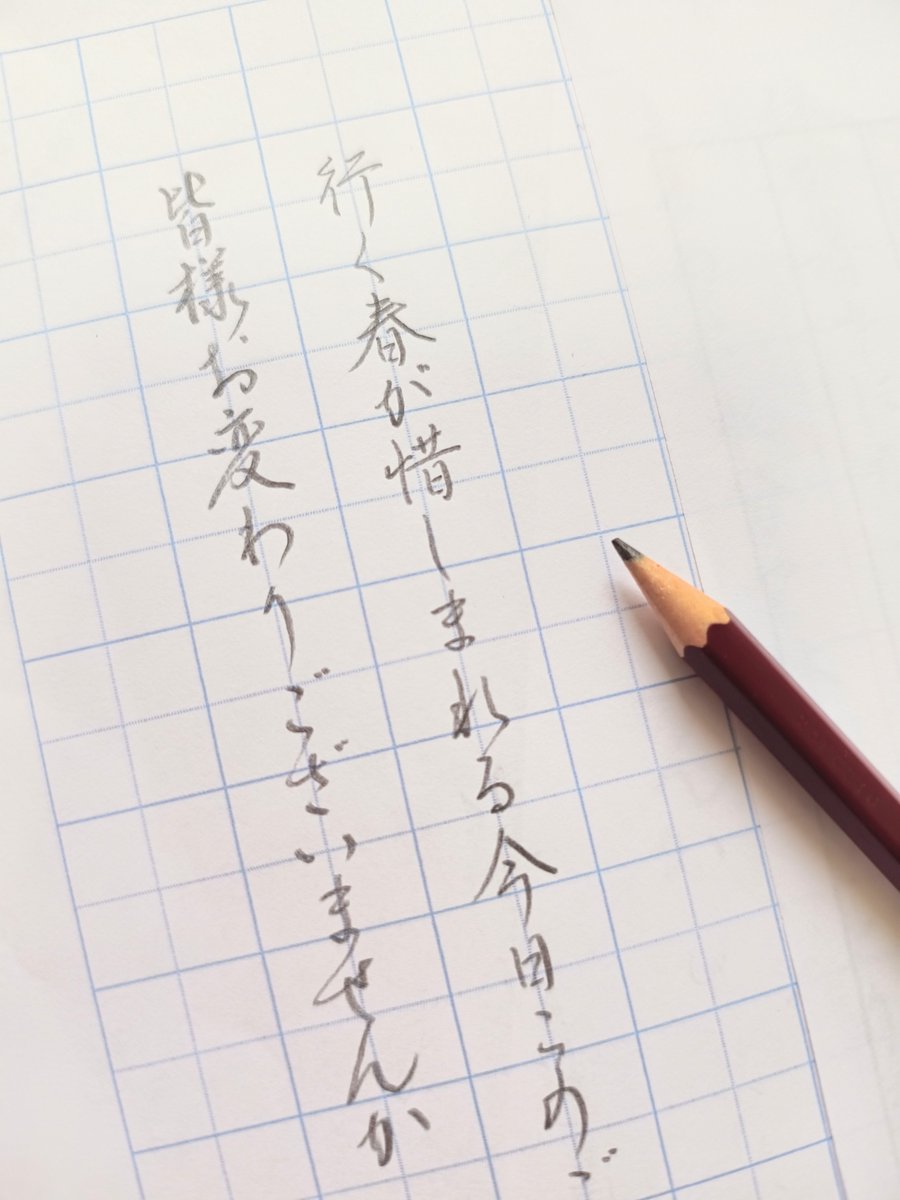 行く春が惜しまれる今日このご
皆様、お変わりございませんか